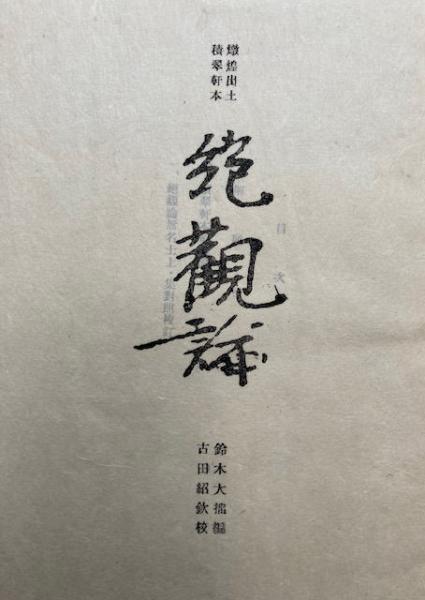 燉煌出土
積翠軒本
絶觀論
鈴木大拙編
古田紹欽校
目次